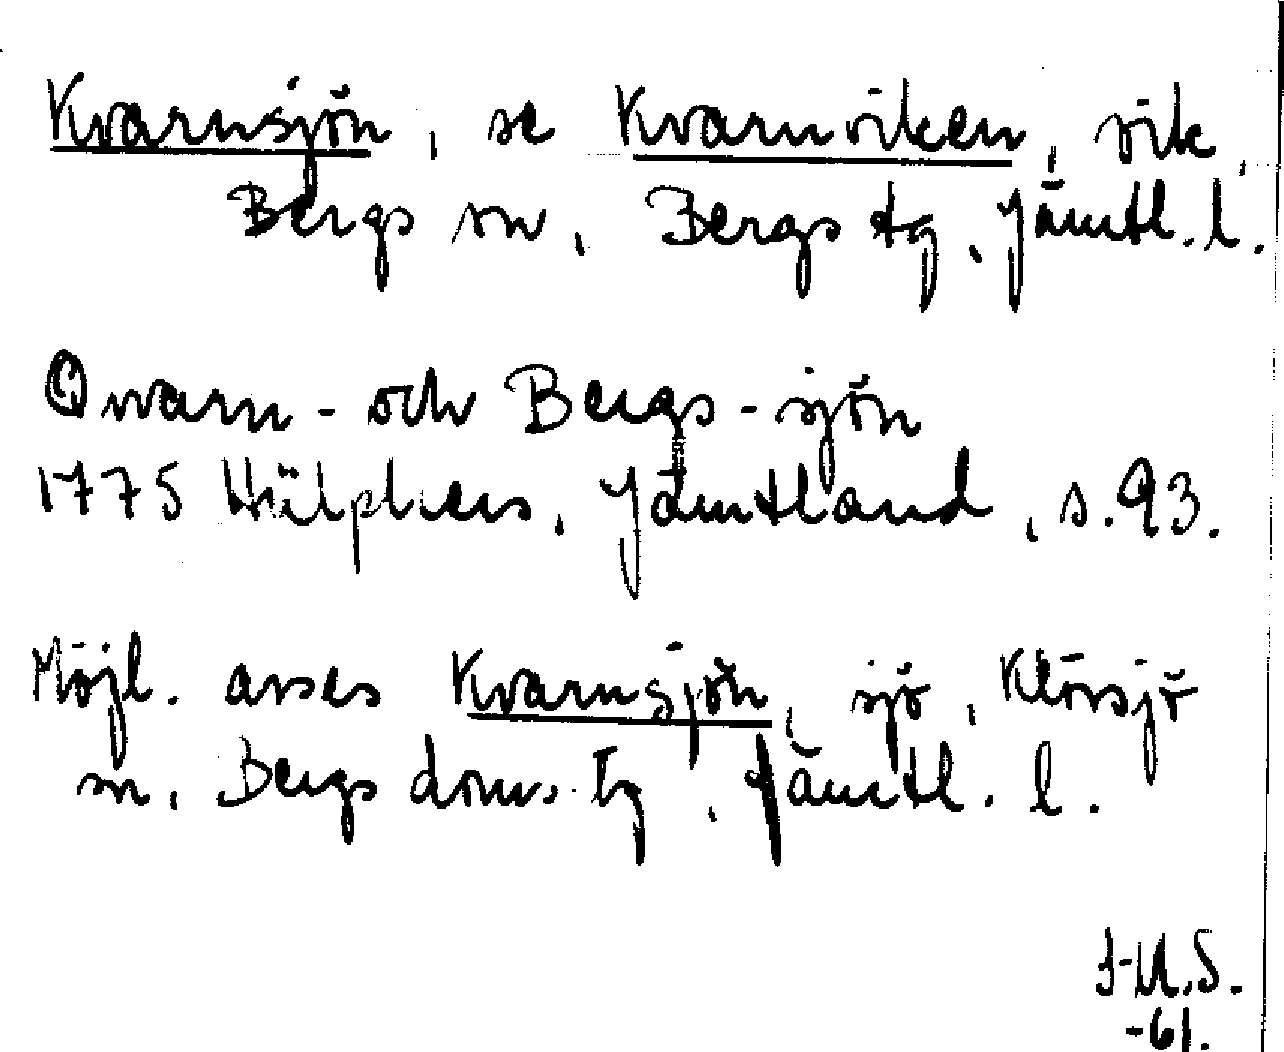 Kvarnsjön, se Kvarnviken, vik,
Bergs sn, Bergs tg, Jämtl. l.
Qwarn- och Bergs-sjön
1775 Hülphers, Jämtland, s. 93.
Möjl. avses Kvarnsjön, sjö, Klövsjö
sn, Bergs doms. tg, Jämtl. l.
J-M.S.
-61.